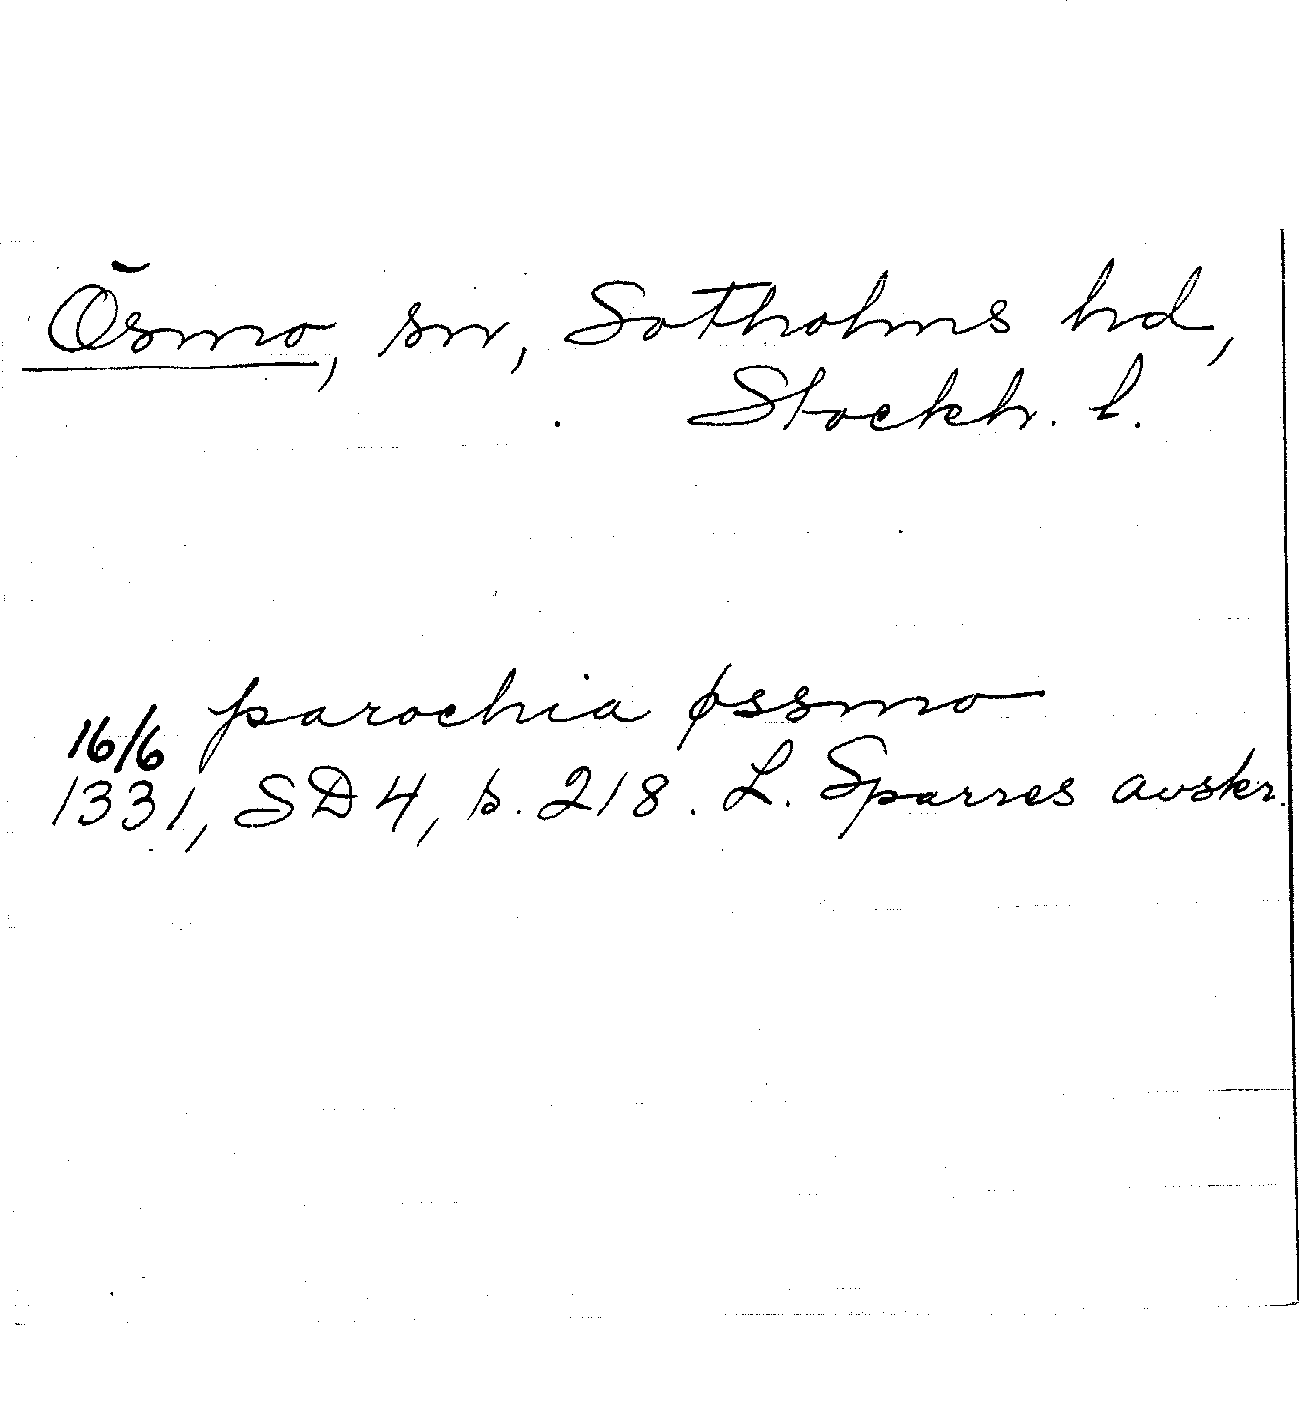 Ösmo, sn, Sotholms hd,
Stockh. l.
parochia øssmo
16/6
1331, SD 4, s. 218. L. Sparres avskr.